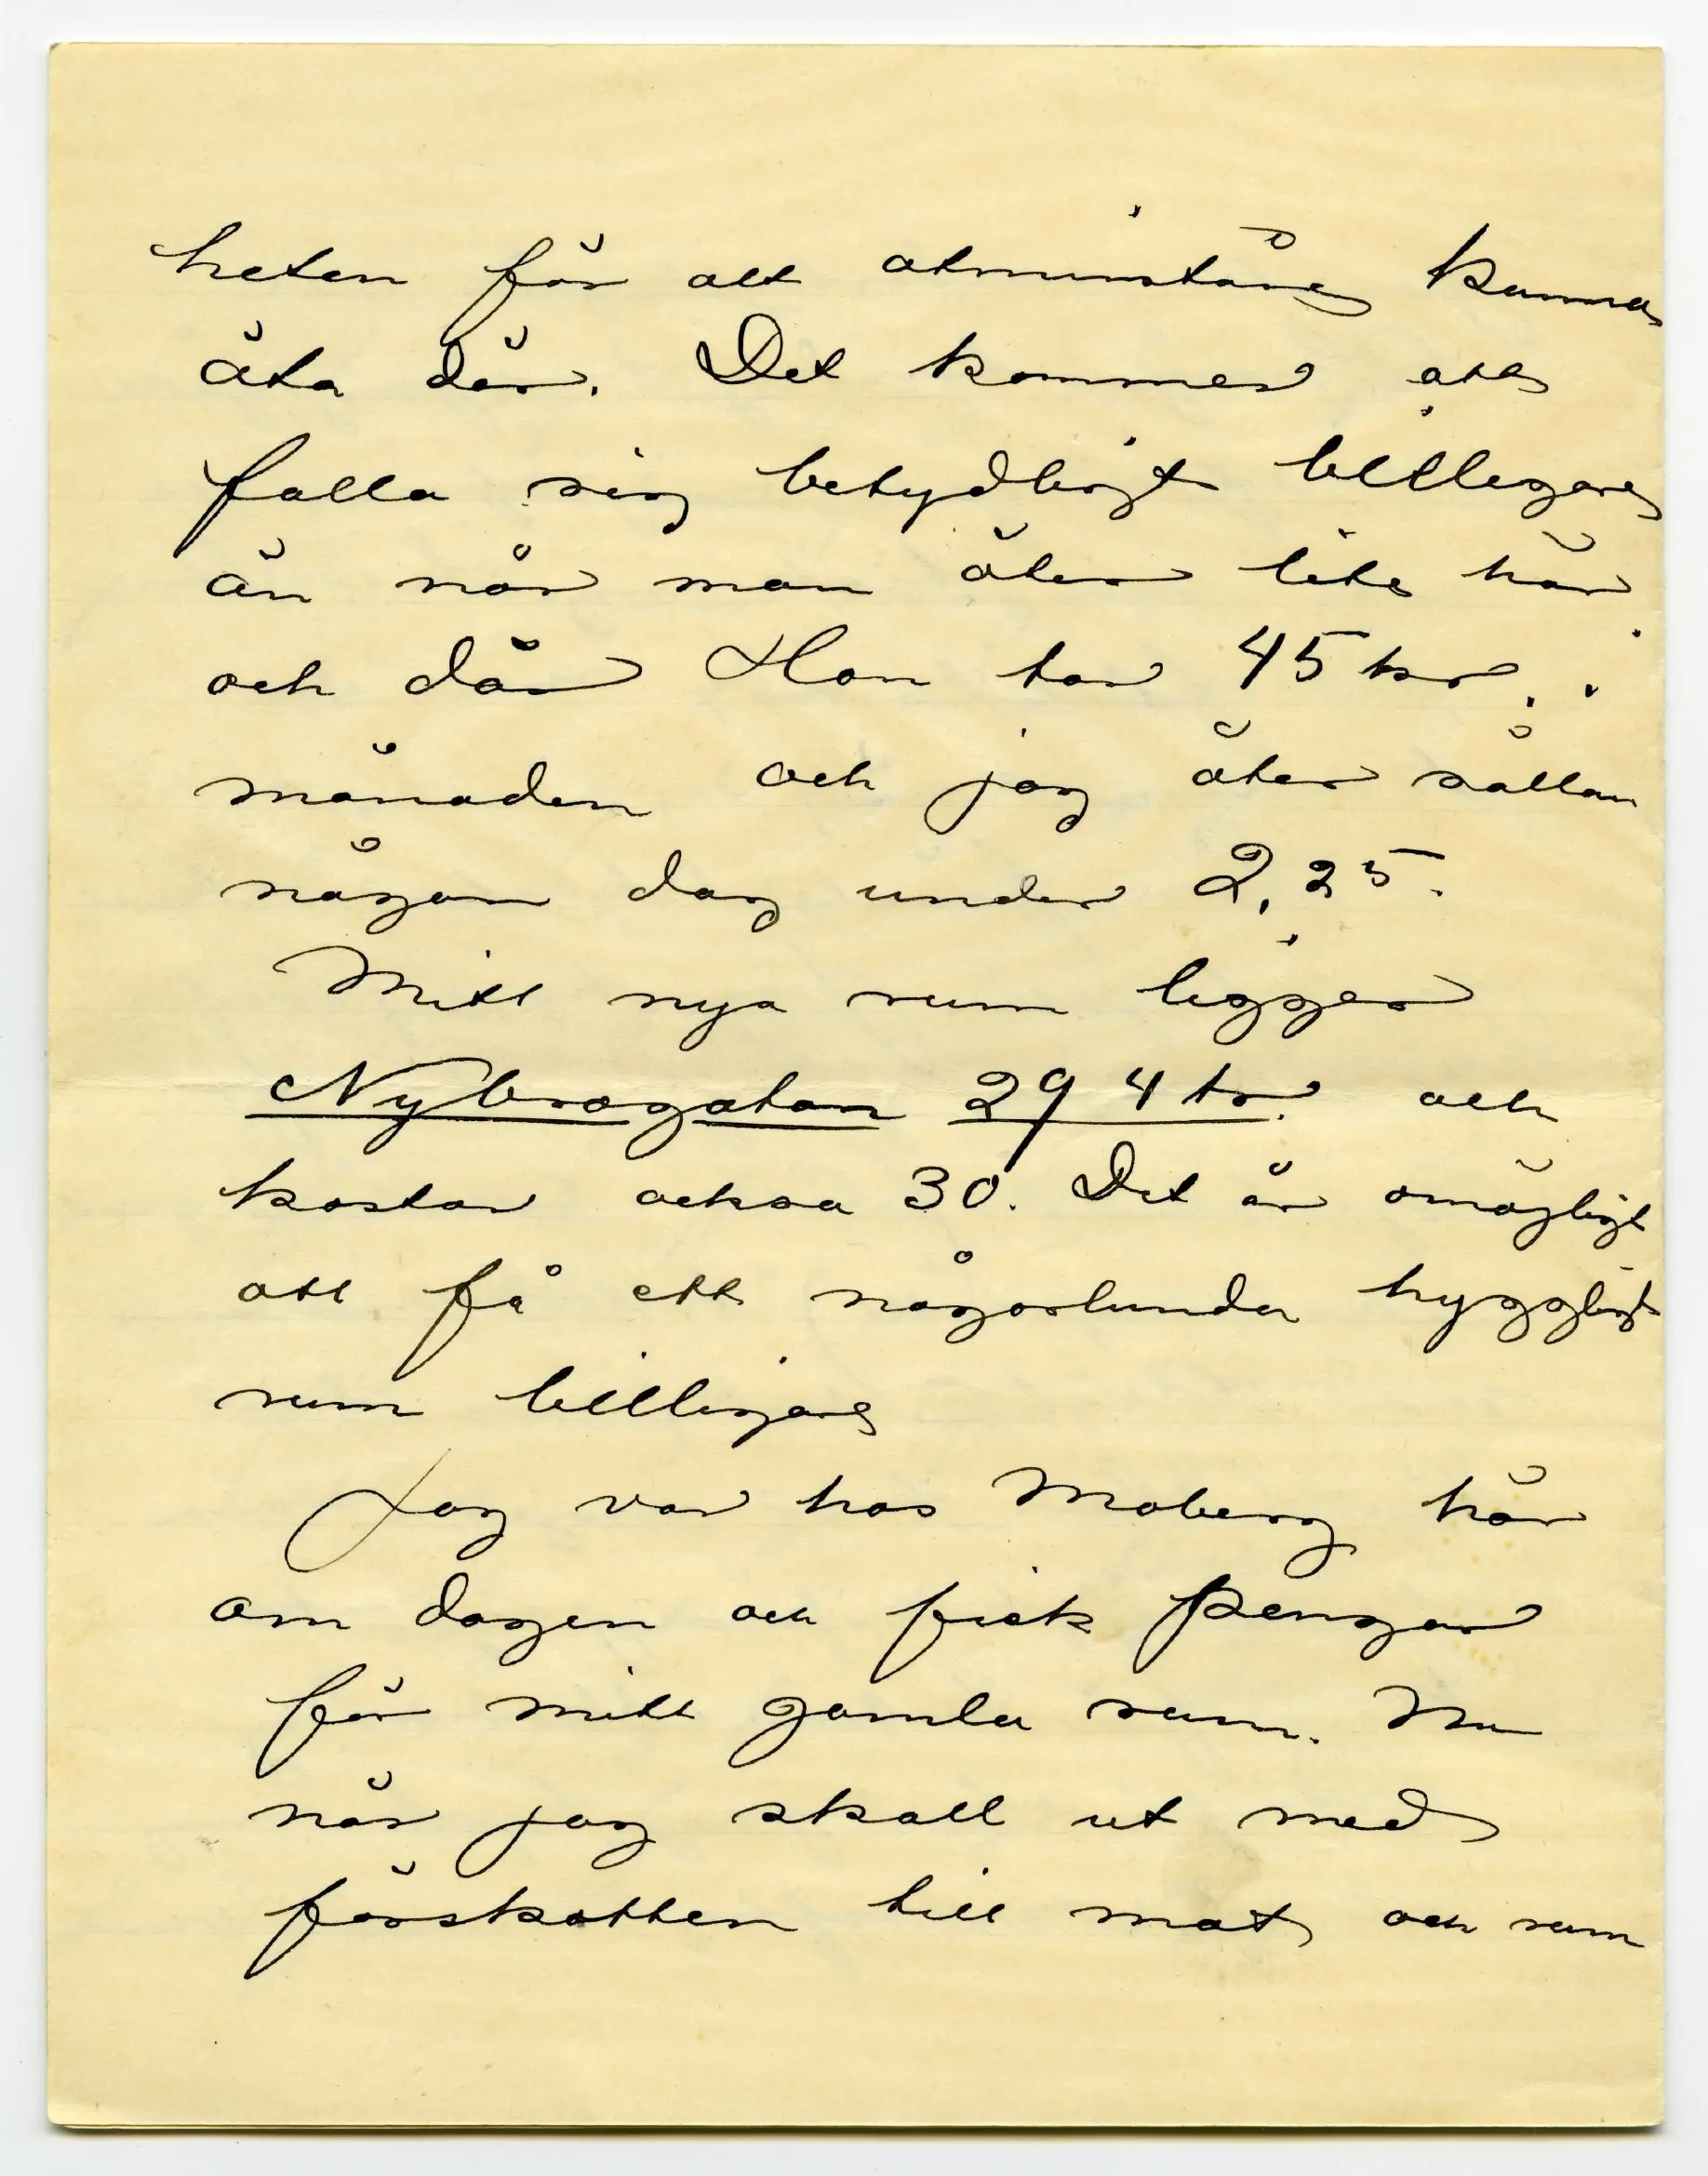 heten för att åtminstone kunna
äta där. Det kommer att
falla sig betydligt billigare
än när man äter lite här
och där Hon tar 45 kr. i
månaden och jag äter sällan
någon dag under 2,25.
Mitt nya rum ligger
Nybrogatan 29 4 tr. och
kostar också 30. Det är omöjligt
att få ett någorlunda hyggligt
rum billigare
Jag var hos Moberg här
om dagen och fick pengar
för mitt gamla rum. Nu
när jag skall ut med
förskotten till mat och rum